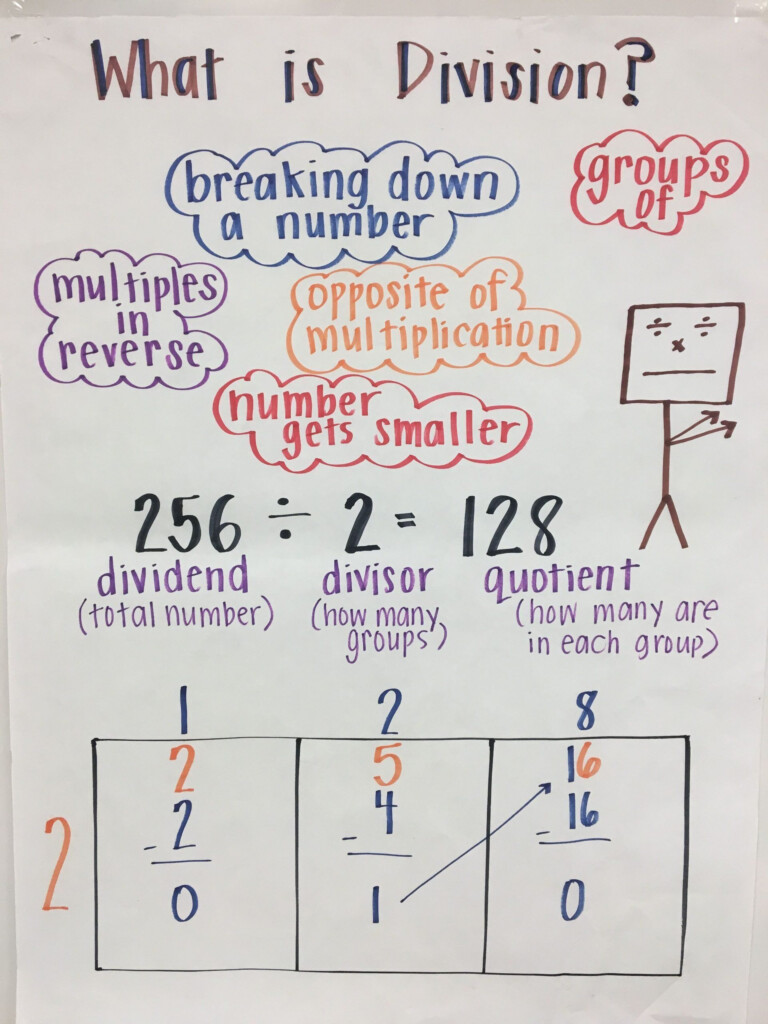 What is Division?
breaking down
a number
groups
of
multiples
in
reverse
opposite of
multiplication
÷ ÷
x
number
gets smaller
256 ÷ 2 = 128
dividend divisor quotient
(total number) (how many groups) (how many are
in each group)
1 2 8
2 5 16
2 -2 -4 -16
0 1 0